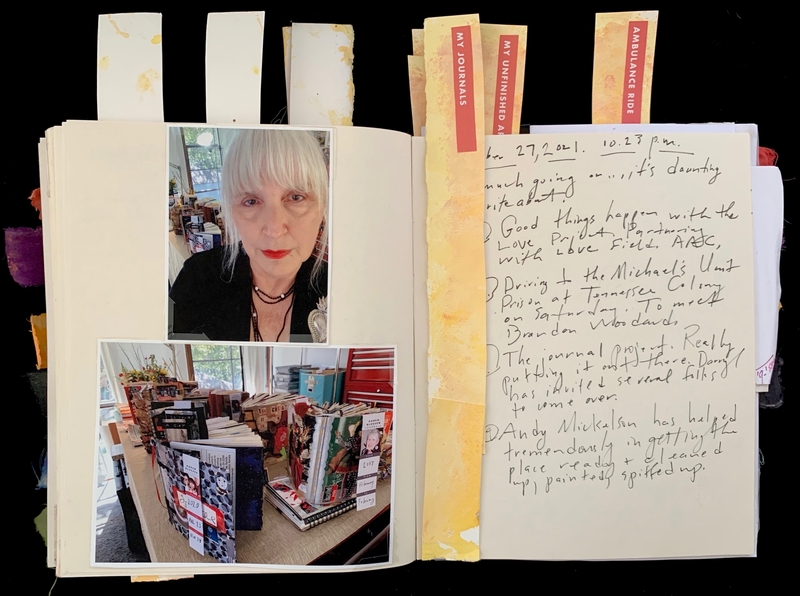 MY JOURNALS
MY UNFINISHED
AMBULANCE RIDE
27, 2021. 10.23 p.m.
much going on..., it's daunting
write about.
Good things happen with the
Love Project. Partnering
with Love Field, APOC,
Driving to the Michael's Unit
Prison at Tennessee Colony
on Saturday. To meet
Brandon Woodards
The journal project. Really
putting it out there. Darryl
has invited several folks
to come over.
Andy Mickelson has helped
tremendously in getting the
place ready & cleaned
up, painted, spiffed up.